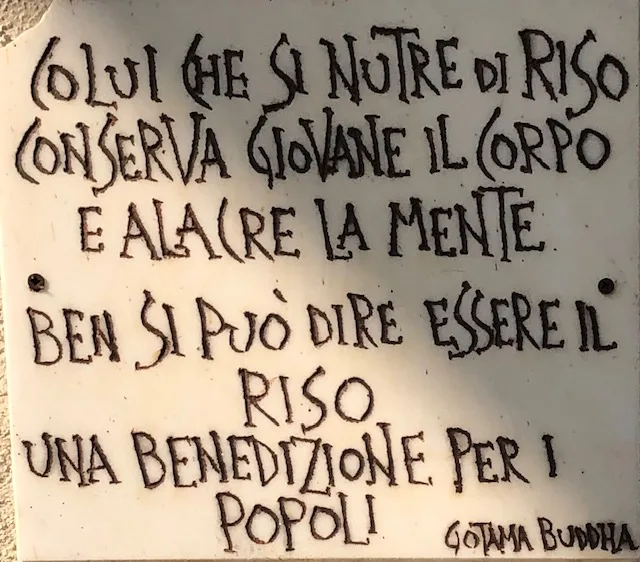 COLUI CHE SI NUTRE DI RISO
CONSERVA GIOVANE IL CORPO
E ALACRE LA MENTE
BEN SI PUÒ DIRE ESSERE IL
RISO
UNA BENEDIZIONE PER I
POPOLI
GOTAMA BUDDHA